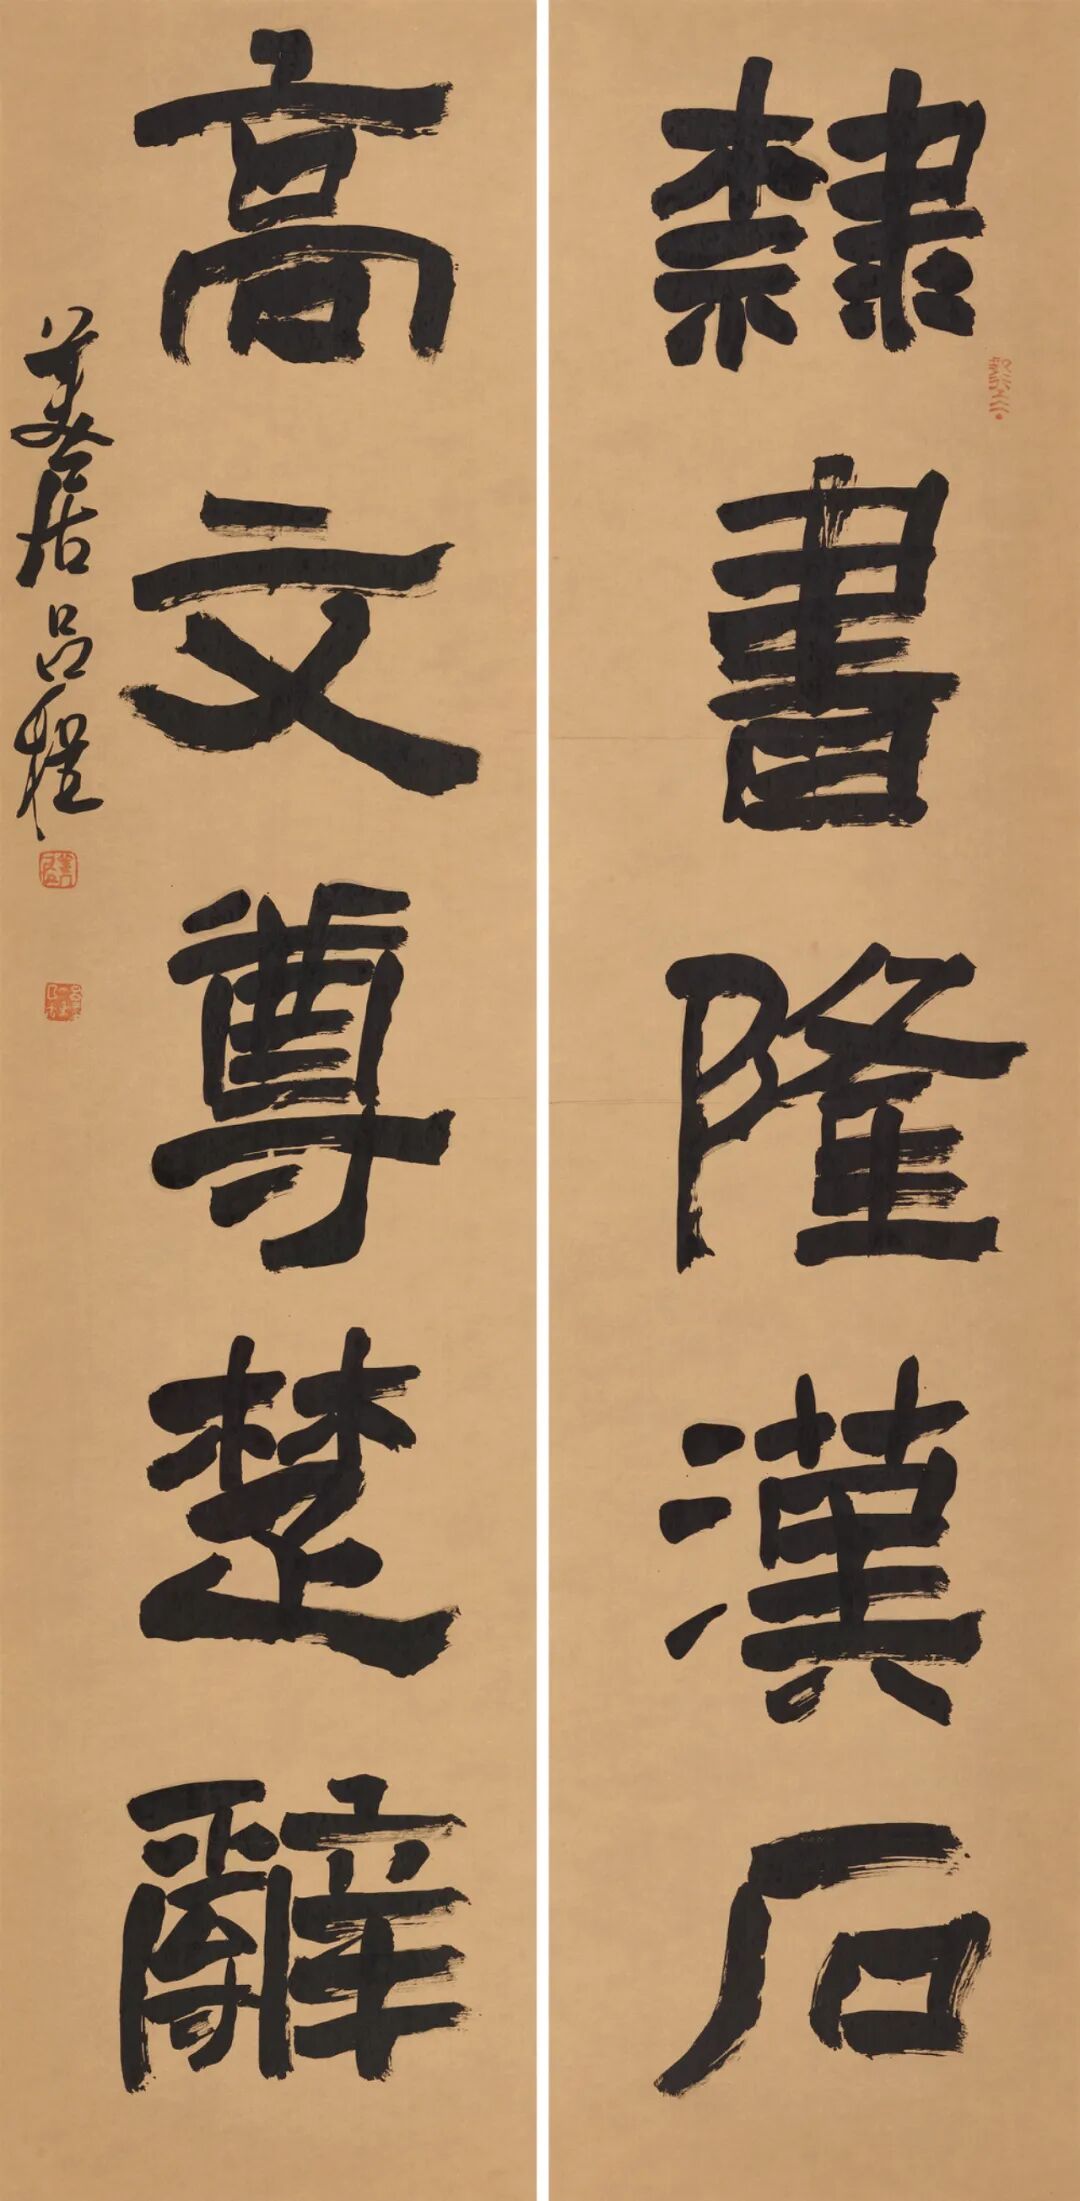 隸書隆漢石
高文尊楚辭
善居呂程